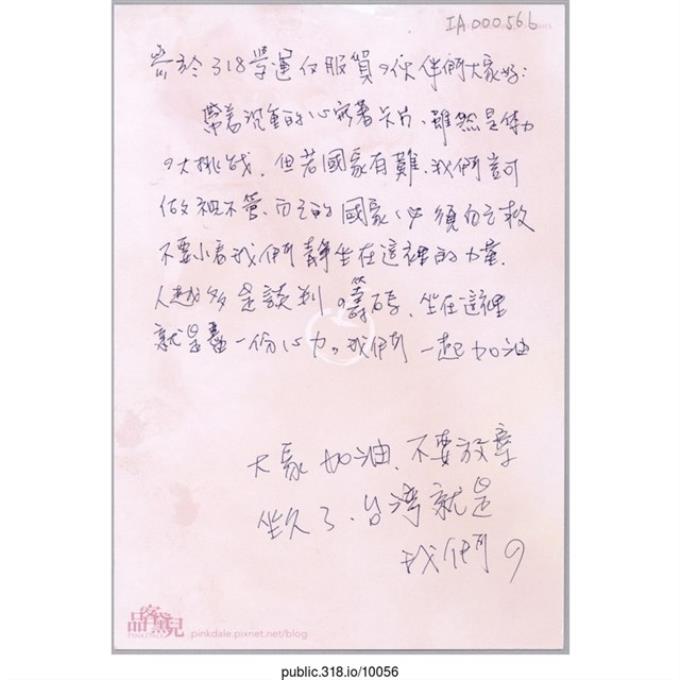 IA000566
於318學運反服貿の伙伴們大家好:
帶著沉重的心寫著卡片,雖然是體力
の大挑战,但若國家有難,我們豈可
做視不管,自己的國家必須自己救
不要小看我們靜坐在這裡的力量,
人越多是談判の籌碼,坐在這裡
就是盡一份心力。我們一起加油
大家加油,不要放棄
坐久了,台灣就是
我們の
品客黛兒
pinkdale.pixnet.net/blog
public.318.io/10056